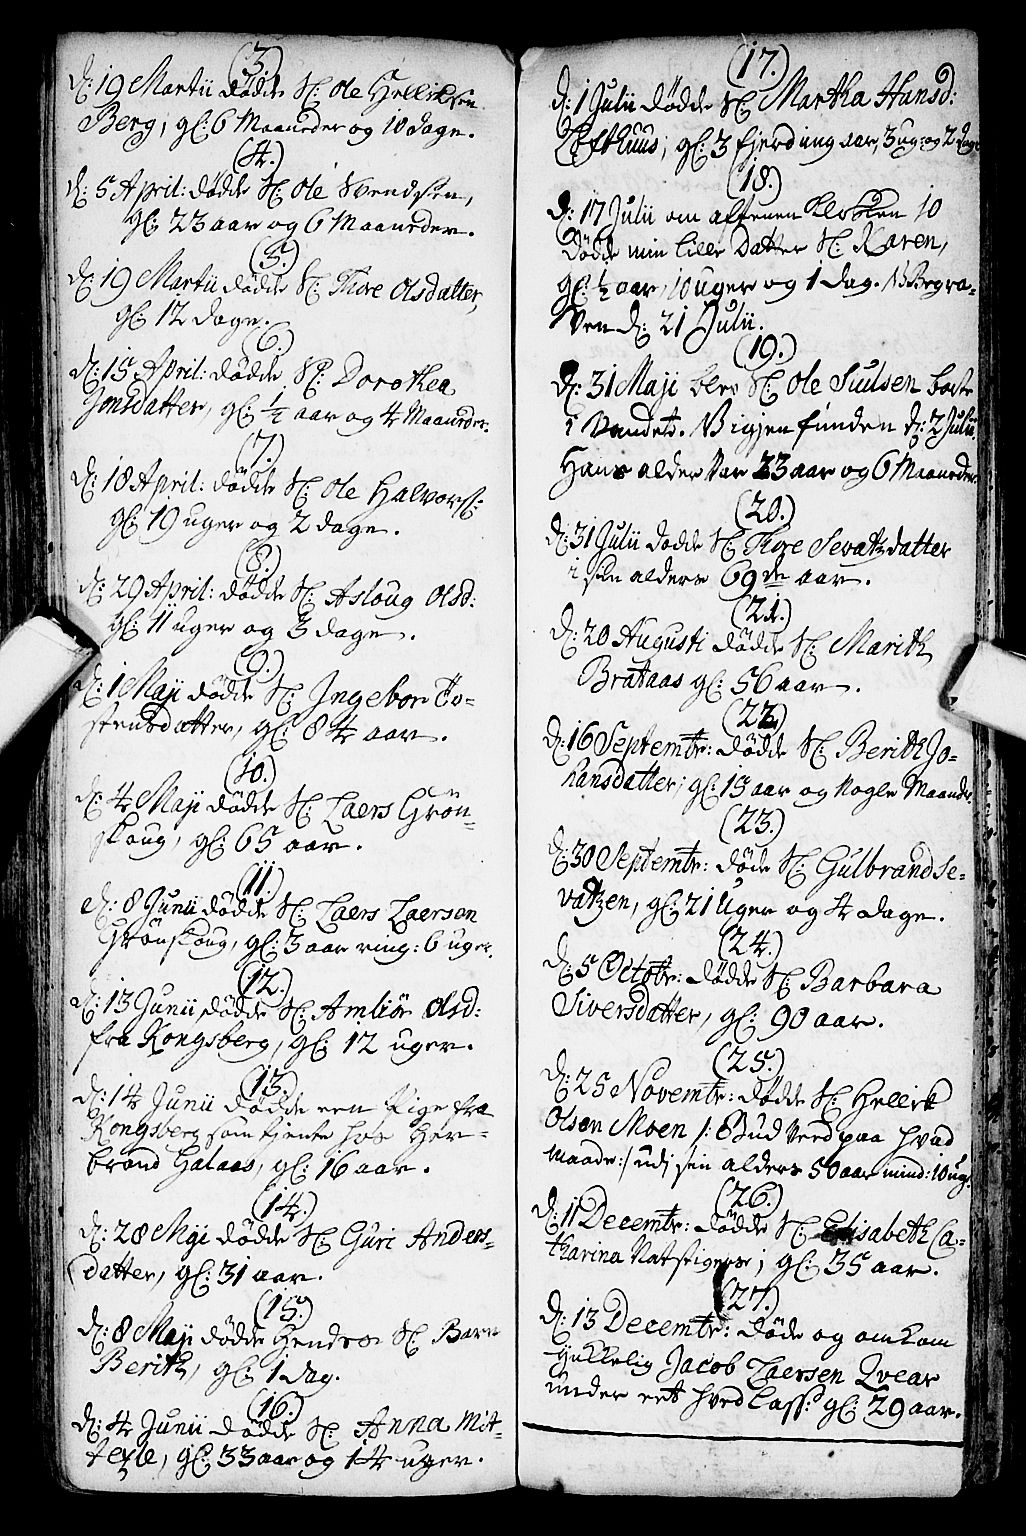 (3.)
d: 19 Martii dødde Sl: Ole Hellichsen
Berg, gl: 6 Maaneder og 10 dage.
(4.)
d: 5 April: dødde Sl: Ole Svendsen,
gl: 23 aar og 6 Maaneder.
(5.)
d: 19 Martii dødde Sl: Thore Olsdatter,
gl: 12 dage.
(6.)
d: 15 April: dødde Sl: Dorothea
Jonsdatter, gl: ½ aar og 4 Maaneder.
(7.)
d: 18 April: dødde Sl: Ole Halvors:
gl: 19 uger og 2 dage.
(8.)
d: 29 April: dødde Sl: Asloug Olsd:
gl: 11 uger og 3 dage.
(9.)
d: 1 Maji dødde Sl: Ingebor To-
stensdatter, gl: 84 aar.
(10.)
d: 4 Maji dødde Sl: Laers Grøn-
skoug, gl: 65 aar.
(11.)
d: 8 Junii dødde Sl: Laers Laersen
Grønskoug, gl: 3 aar ring: 6 uger.
(12.)
d: 13 Junii dødde Sl: Amliør Olsd:
fra Kongsberg, gl: 12 uger.
(13.)
d: 14 Junii dødde een Pige fra
Kongsberg som tjente hos Her-
brand Galaas, gl: 16 aar.
(14.)
d: 28 Mai dødde Sl: Guri Anders-
datter, gl: 31 aar.
(15.)
d: 8 Maji dødde Sl: Barn
Berith, gl: 1 dag.
(16.)
d: 4 Junii dødde Sl: Anna Mit-
gl: 33 aar og 14 uger.
(17.)
d: 1 Julii dødde Sl: Martha Hansd:
Lofthuus, gl: 3 fjerding aar, 3 ug: og 2 dage
(18.)
d: 17 Julii om aftenen Klokken 10
dødde min lille Datter Sl: Karen,
gl: ½ aar, 10 uger og 1 dag. Begra-
ven d: 21 Julii.
(19.)
d: 31 Maji blev Sl: Ole Siulsen borte
i Vandet. igjen funden d: 2 Julii.
Hans alder var 23 aar og 6 Maaneder
(20.)
d: 31 Julii dødde Sl: Thore Sevatzdatter
i sin alders 69de aar.
(21.)
d: 20 Augusti dødde Sl: Marith
Brataas gl: 56 aar.
(22.)
d: 16 Septembr: dødde Sl: Berith Jo-
hansdatter, gl: 13 aar og Nogle Maaneder
(23.)
d: 30 Septembr: døde Sl: Gulbrand Se-
vatzen, gl: 21 Uger og 4 dage.
(24.)
d: 5 Octobr: dødde Sl: Barbara
Siversdatter, gl: 90 aar.
(25.)
d: 25 Novembr: dødde Sl: Hellik
Olsen Moen /: Gud veed paa hvad
maade :/ udi sin alders 50 aar mind: 10 ug:
(26.)
d: 11 Decembr: dødde Sl: Elisabeth Ca-
tharina Natstigers; gl: 35 aar.
(27.)
d: 13 Decembr: døde og omkom
Jacob Laersen Qvear
under eet hved lass: gl: 29 aar.